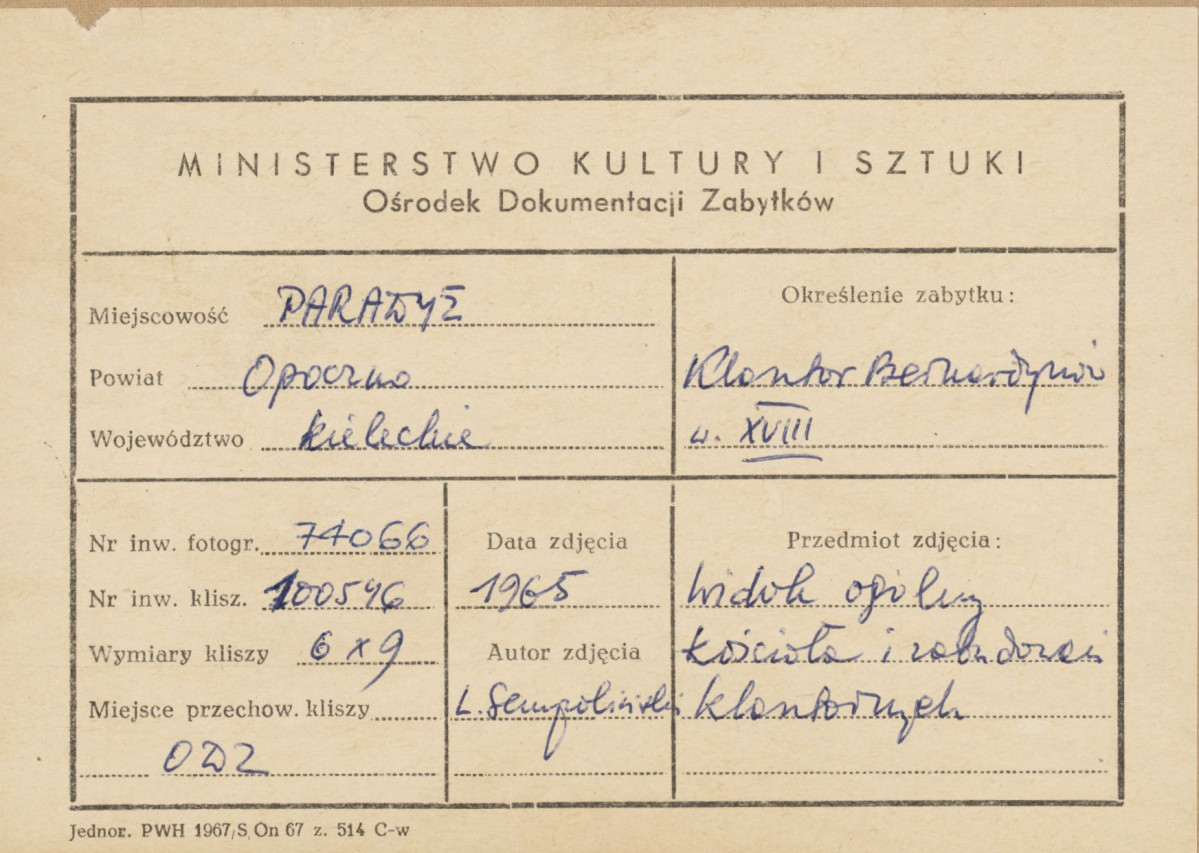 MINISTERSTWO KULTURY I SZTUKI
Ośrodek Dokumentacji Zabytków
Miejscowość PARADYŻ
Powiat Opoczno
Województwo kieleckie
Określenie zabytku:
Klasztor Bernardynów
w. XVIII
Nr inw. fotogr. 74066
Nr inw. klisz. 100596
Wymiary kliszy 6 x 9
Miejsce przechow. kliszy
ODZ
Data zdjęcia
1965
Autor zdjęcia
L. Sempoliński
Przedmiot zdjęcia:
Widok ogólny
kościoła i zabudowań
klasztornych
Jednor. PWH 1967/S On 67 z. 514 C-w